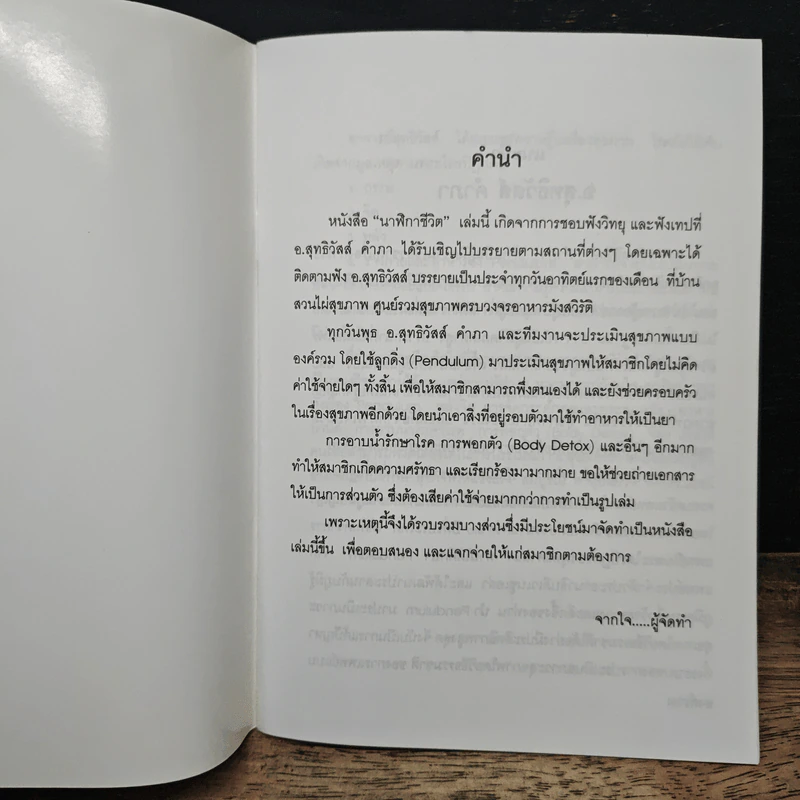 คำนำ
หนังสือ "นาฬิกาชีวิต" เล่มนี้ เกิดจากการชอบฟังวิทยุ และฟังเทปที่
อ.สุทธิวัสส์ คำภา ได้รับเชิญไปบรรยายตามสถานที่ต่างๆ โดยเฉพาะได้
ติดตามฟัง อ.สุทธิวัสส์ บรรยายเป็นประจำทุกวันอาทิตย์แรกของเดือน ที่บ้าน
สวนไผ่สุขภาพ ศูนย์รวมสุขภาพครบวงจรอาหารมังสวิรัติ
ทุกวันพุธ อ.สุทธิวัสส์ คำภา และทีมงานจะประเมินสุขภาพแบบ
องค์รวม โดยใช้ลูกดิ่ง (Pendulum) มาประเมินสุขภาพให้สมาชิกโดยไม่คิด
ค่าใช้จ่ายใดๆ ทั้งสิ้น เพื่อให้สมาชิกสามารถพึ่งตนเองได้ และยังช่วยครอบครัว
ในเรื่องสุขภาพอีกด้วย โดยนำเอาสิ่งที่อยู่รอบตัวมาใช้ทำอาหารให้เป็นยา
การอาบน้ำรักษาโรค การพอกตัว (Body Detox) และอื่นๆ อีกมาก
ทำให้สมาชิกเกิดความศรัทธา และเรียกร้องมามากมาย ขอให้ช่วยถ่ายเอกสาร
ให้เป็นการส่วนตัว ซึ่งต้องเสียค่าใช้จ่ายมากกว่าการทำเป็นรูปเล่ม
เพราะเหตุนี้จึงได้รวบรวมบางส่วนซึ่งมีประโยชน์มาจัดทำเป็นหนังสือ
เล่มนี้ขึ้น เพื่อตอบสนอง และแจกจ่ายให้แก่สมาชิกตามต้องการ
จากใจ.....ผู้จัดทำ